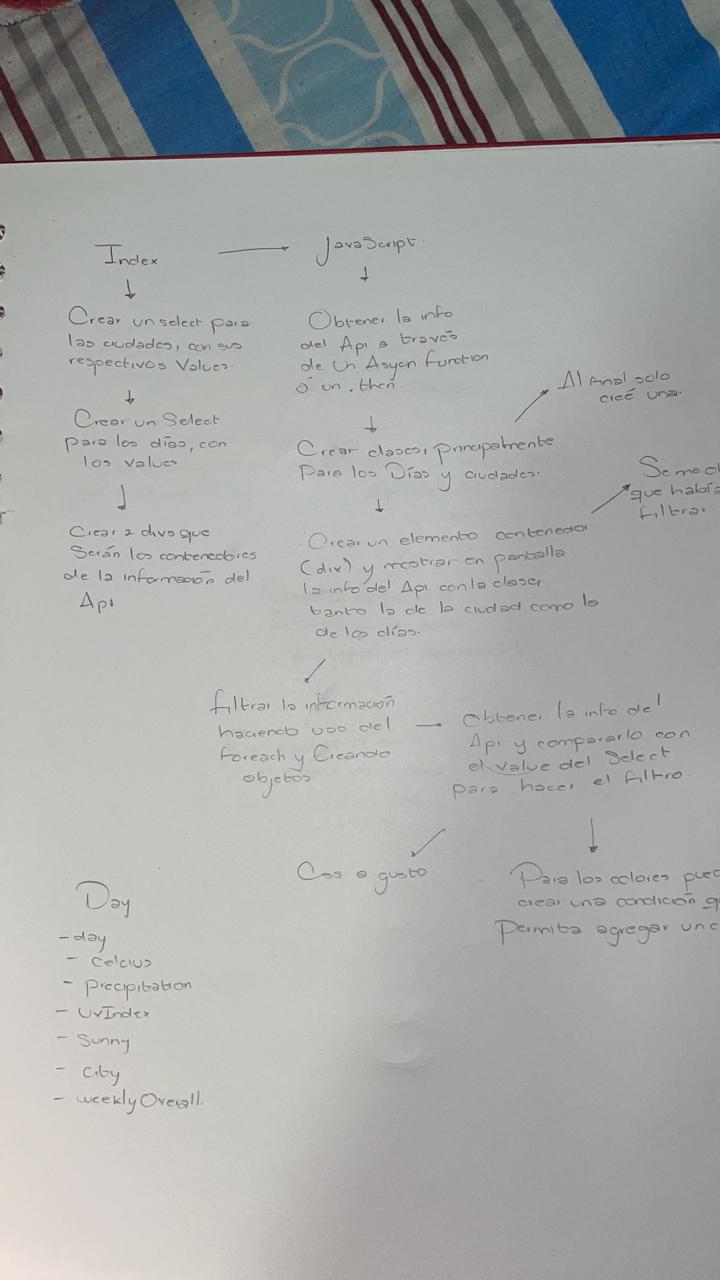 Index
Crear un select para
las ciudades, con sus
respectivos Values.
Crear un Select
para los días, con
los values
Crear 2 divs que
Serán los contenedores
de la información del
Api
JavaScript.
Obtener la info
del Api a través
de un Asycn function
ó un .then.
Crear clases, principalmente
Para los Días y ciudades.
Al final solo
creé una.
Crear un elemento contenedor
(div) y mostrar en pantalla
la info del Api con la clases
tanto la de la ciudad como la
de los días.
Se me ol
que había
filtrar.
filtrar la información
haciendo uso del
foreach y Creando
objetos.
Obtener la info del
Api y compararlo con
el value del Select
para hacer el filtro.
Css a gusto
Para los colores pued
crear una condición q
Permita agregar un c
Day
- day
- Celcius
- precipitation
- UvIndex
- Sunny
- City
- weeklyOverall.